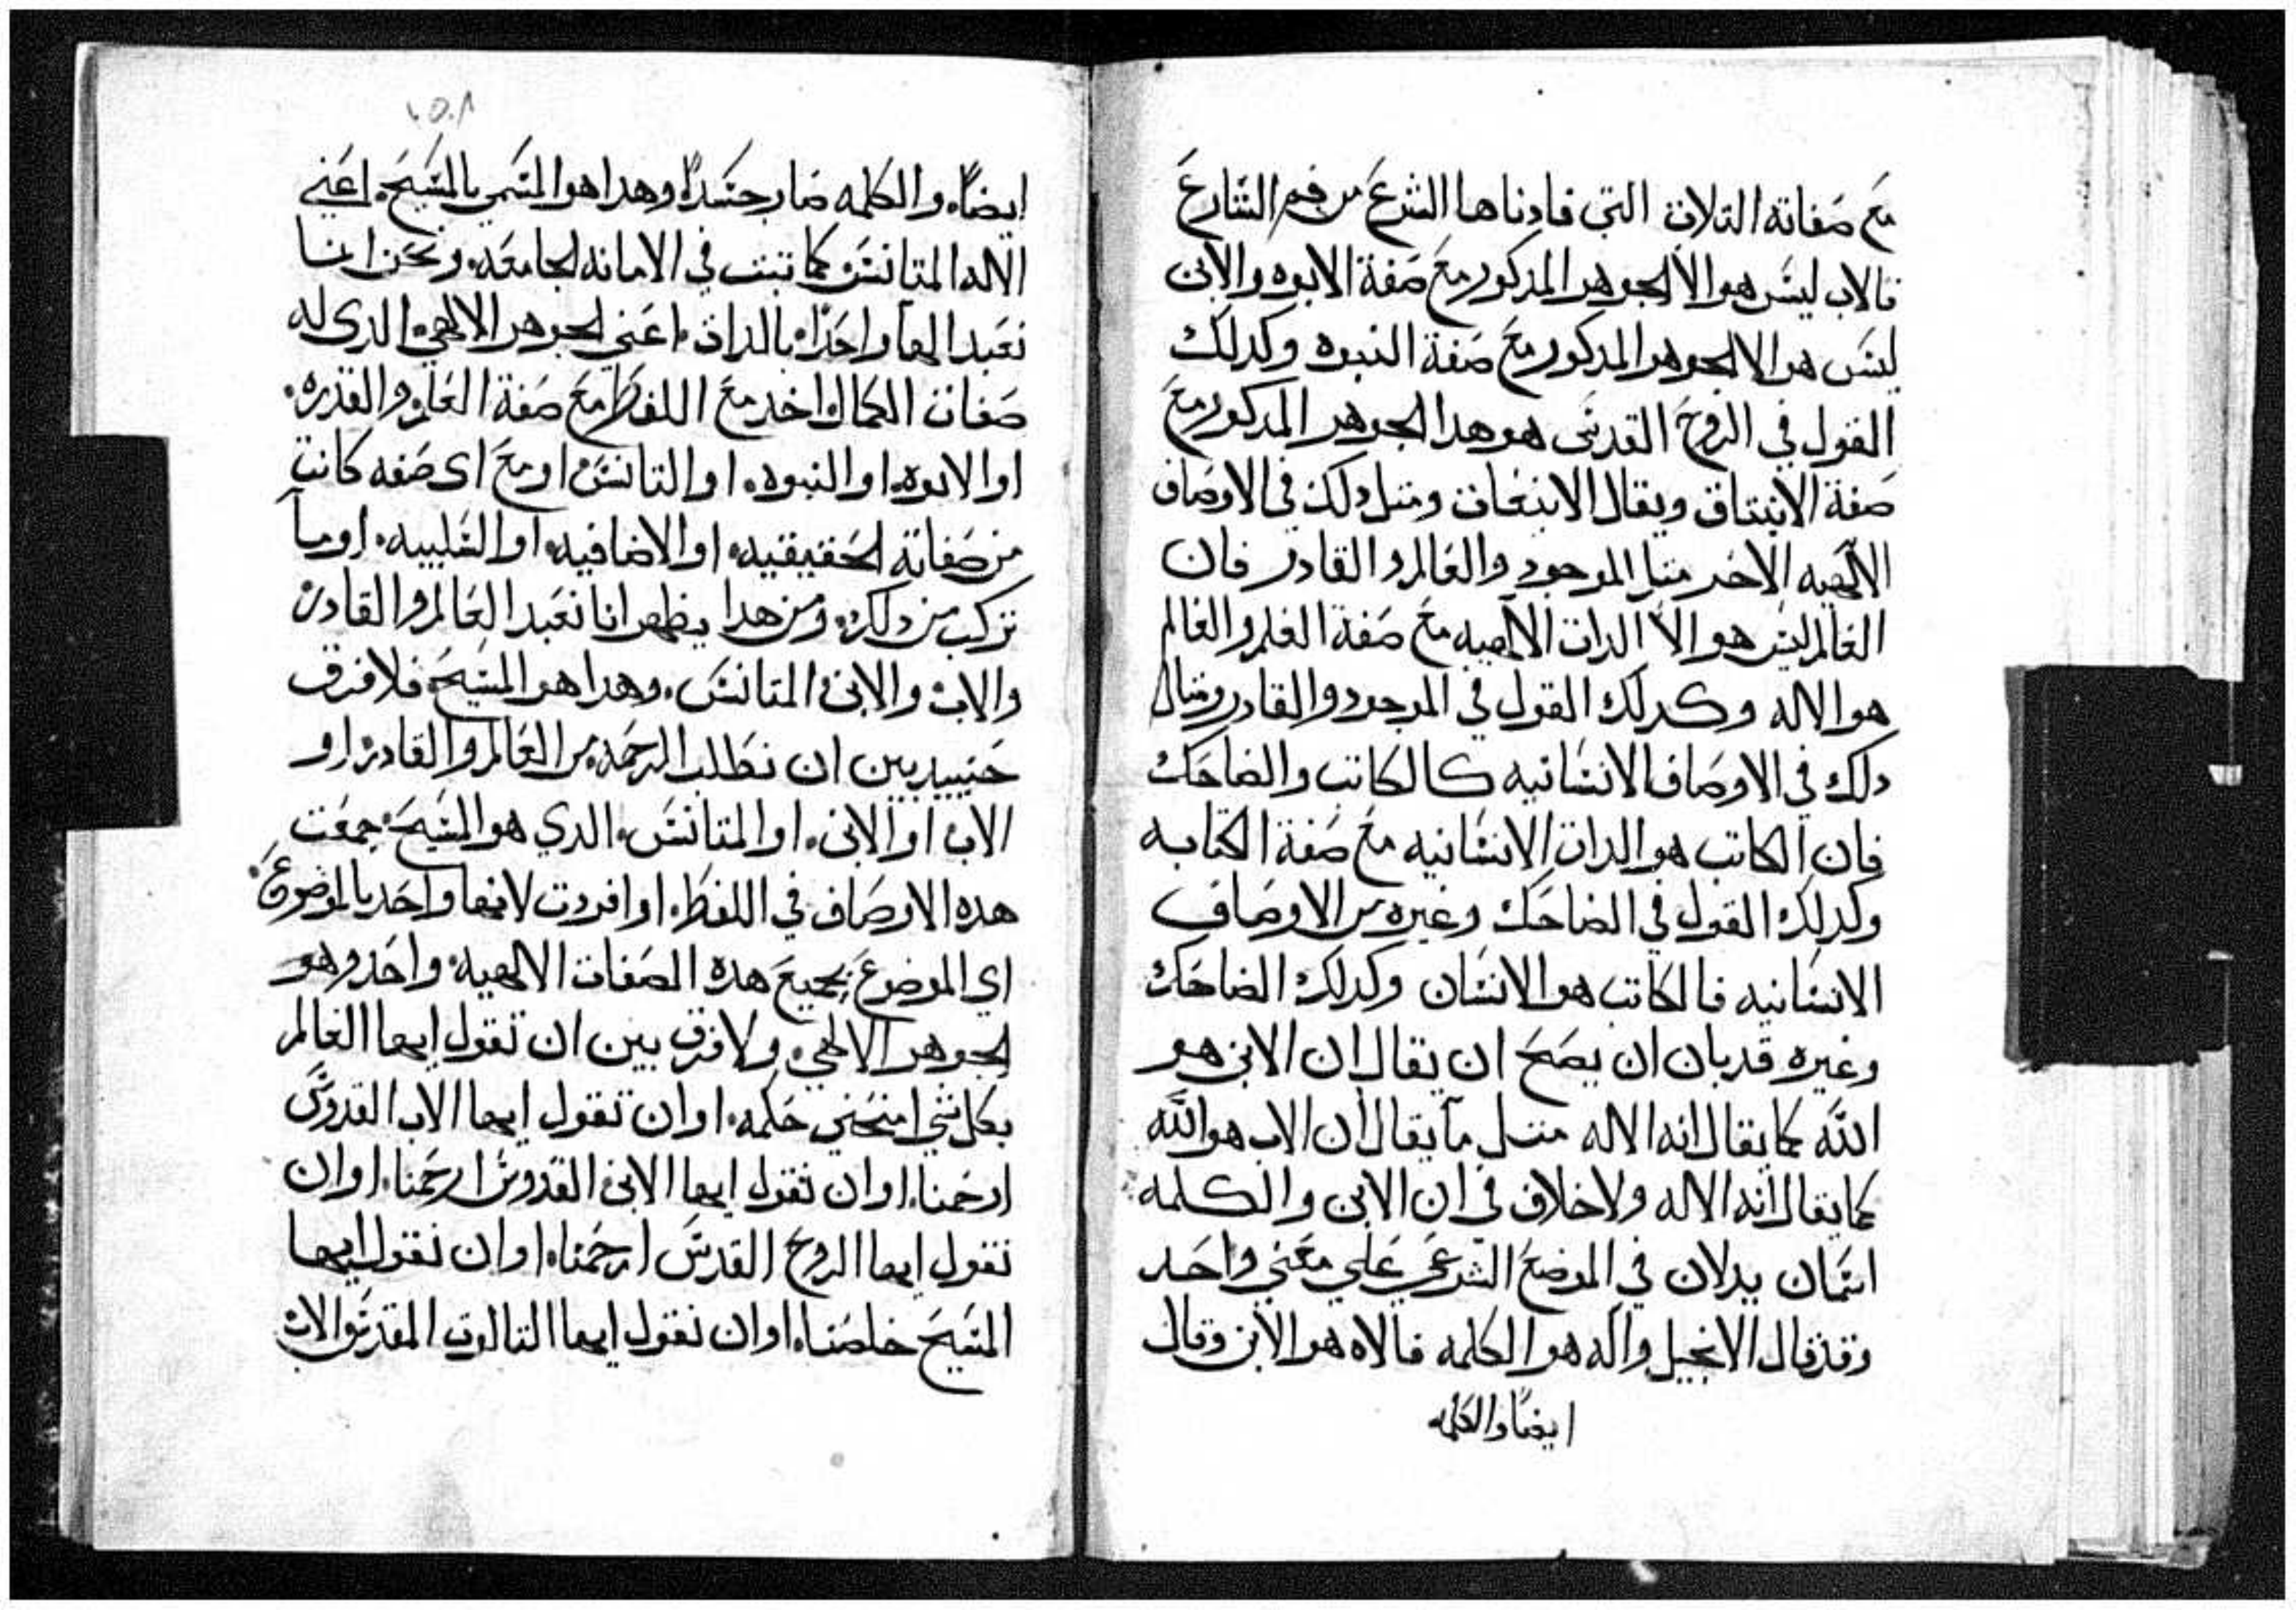 مع صفاته التلات التي فادناها الشرع من فم الشارع
فالاب ليس هو الا الجوهر المدكور مع صفة الابوه والابن
ليس هو الا الجوهر المدكور مع صفة البنوه وكدلك
القول في الروح القدس هو هدا الجوهر المدكور مع
صفة الانبتاق ويقال الانبعات ومتل دلك في الاوصاف
الالهيه الاخر متل الموجود والعالم والقادر فان
العالم ليس هو الا الدات الالهيه مع صفة العلم والعالم
هو الاله وكدلك القول في الموجود والقادر ومتال
دلك في الاوصاف الانسانيه كالكاتب والضاحك
فان الكاتب هو الدات الانسانيه مع صفة الكتابه
وكدلك القول في الضاحك وغيره من الاوصاف
الانسانيه فالكاتب هو الانسان وكدلك الضاحك
وغيره قد بان ان يصح ان يقال ان الابن هو
الله كما يقال انه الاله متل ما يقال ان الاب هو الله
كما يقال انه الاله ولا خلاف في ان الابن والكلمه
اسمان يدلان في الموضع الشرعي علي معني واحد
وقد قال الانجيل واله هو الكلمه فالاه هو الابن وقال
ايضا والكلمه
١٥٨
ايضاً. والكلمه صار جسداً وهدا هو المسمي بالمسيح. اعني
الاله المتانس كما تبت في الامانه الجامعه. ونحن انما
نعبد الهاً واحداً بالدات. اعني الجوهر الالهي. الدي له
صفات الكمال اخد مع اللفظ مع صفة العلم والقدره.
او الابوه. او البنوه. او التانس. او مع اي صفه كانت
من صفاته الحقيقيه. او الاضافيه. او السلبيه. او ما
تركب من دلك. ومن هدا يظهر انا نعبد العالم والقادر
والاب والابن المتانس. وهدا هو المسيح. فلا فرق
حينيد بين ان نطلب الرحمه من العالم والقادر. او
الاب او الابن. او المتانس. الدي هو المسيح. جمعت
هده الاوصاف في اللفظ. او افردت لانها واحد بالموضوع.
اي الموضوع بجميع هده الصفات الالهيه. واحد وهو
الجوهر الالهي. ولا فرق بين ان تقول ايها العالم
بكل شي امنحني حكمه. او ان تقول ايها الاب القدوس
ارحمنا. او ان نقول ايها الابن القدوس ارحمنا. او ان
نقول ايها الروح القدس ارحمنا. او ان نقول ايها
المسيح خلصنا. او ان نقول ايها التالوت المقدس الاب